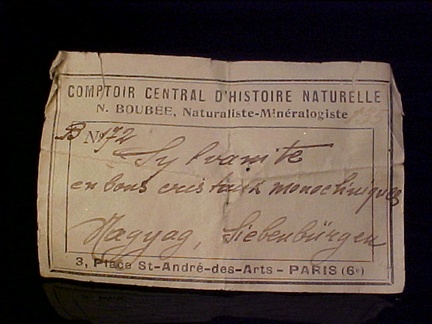 COMPTOIR CENTRAL D'HISTOIRE NATURELLE
N. BOUBÉE, Naturaliste-Minéralogiste
B No 172
Sylvanite
en bons cristaux monocliniques
Nagyag, Siebenbürgen
3, Place St-André-des-Arts - PARIS (6e)